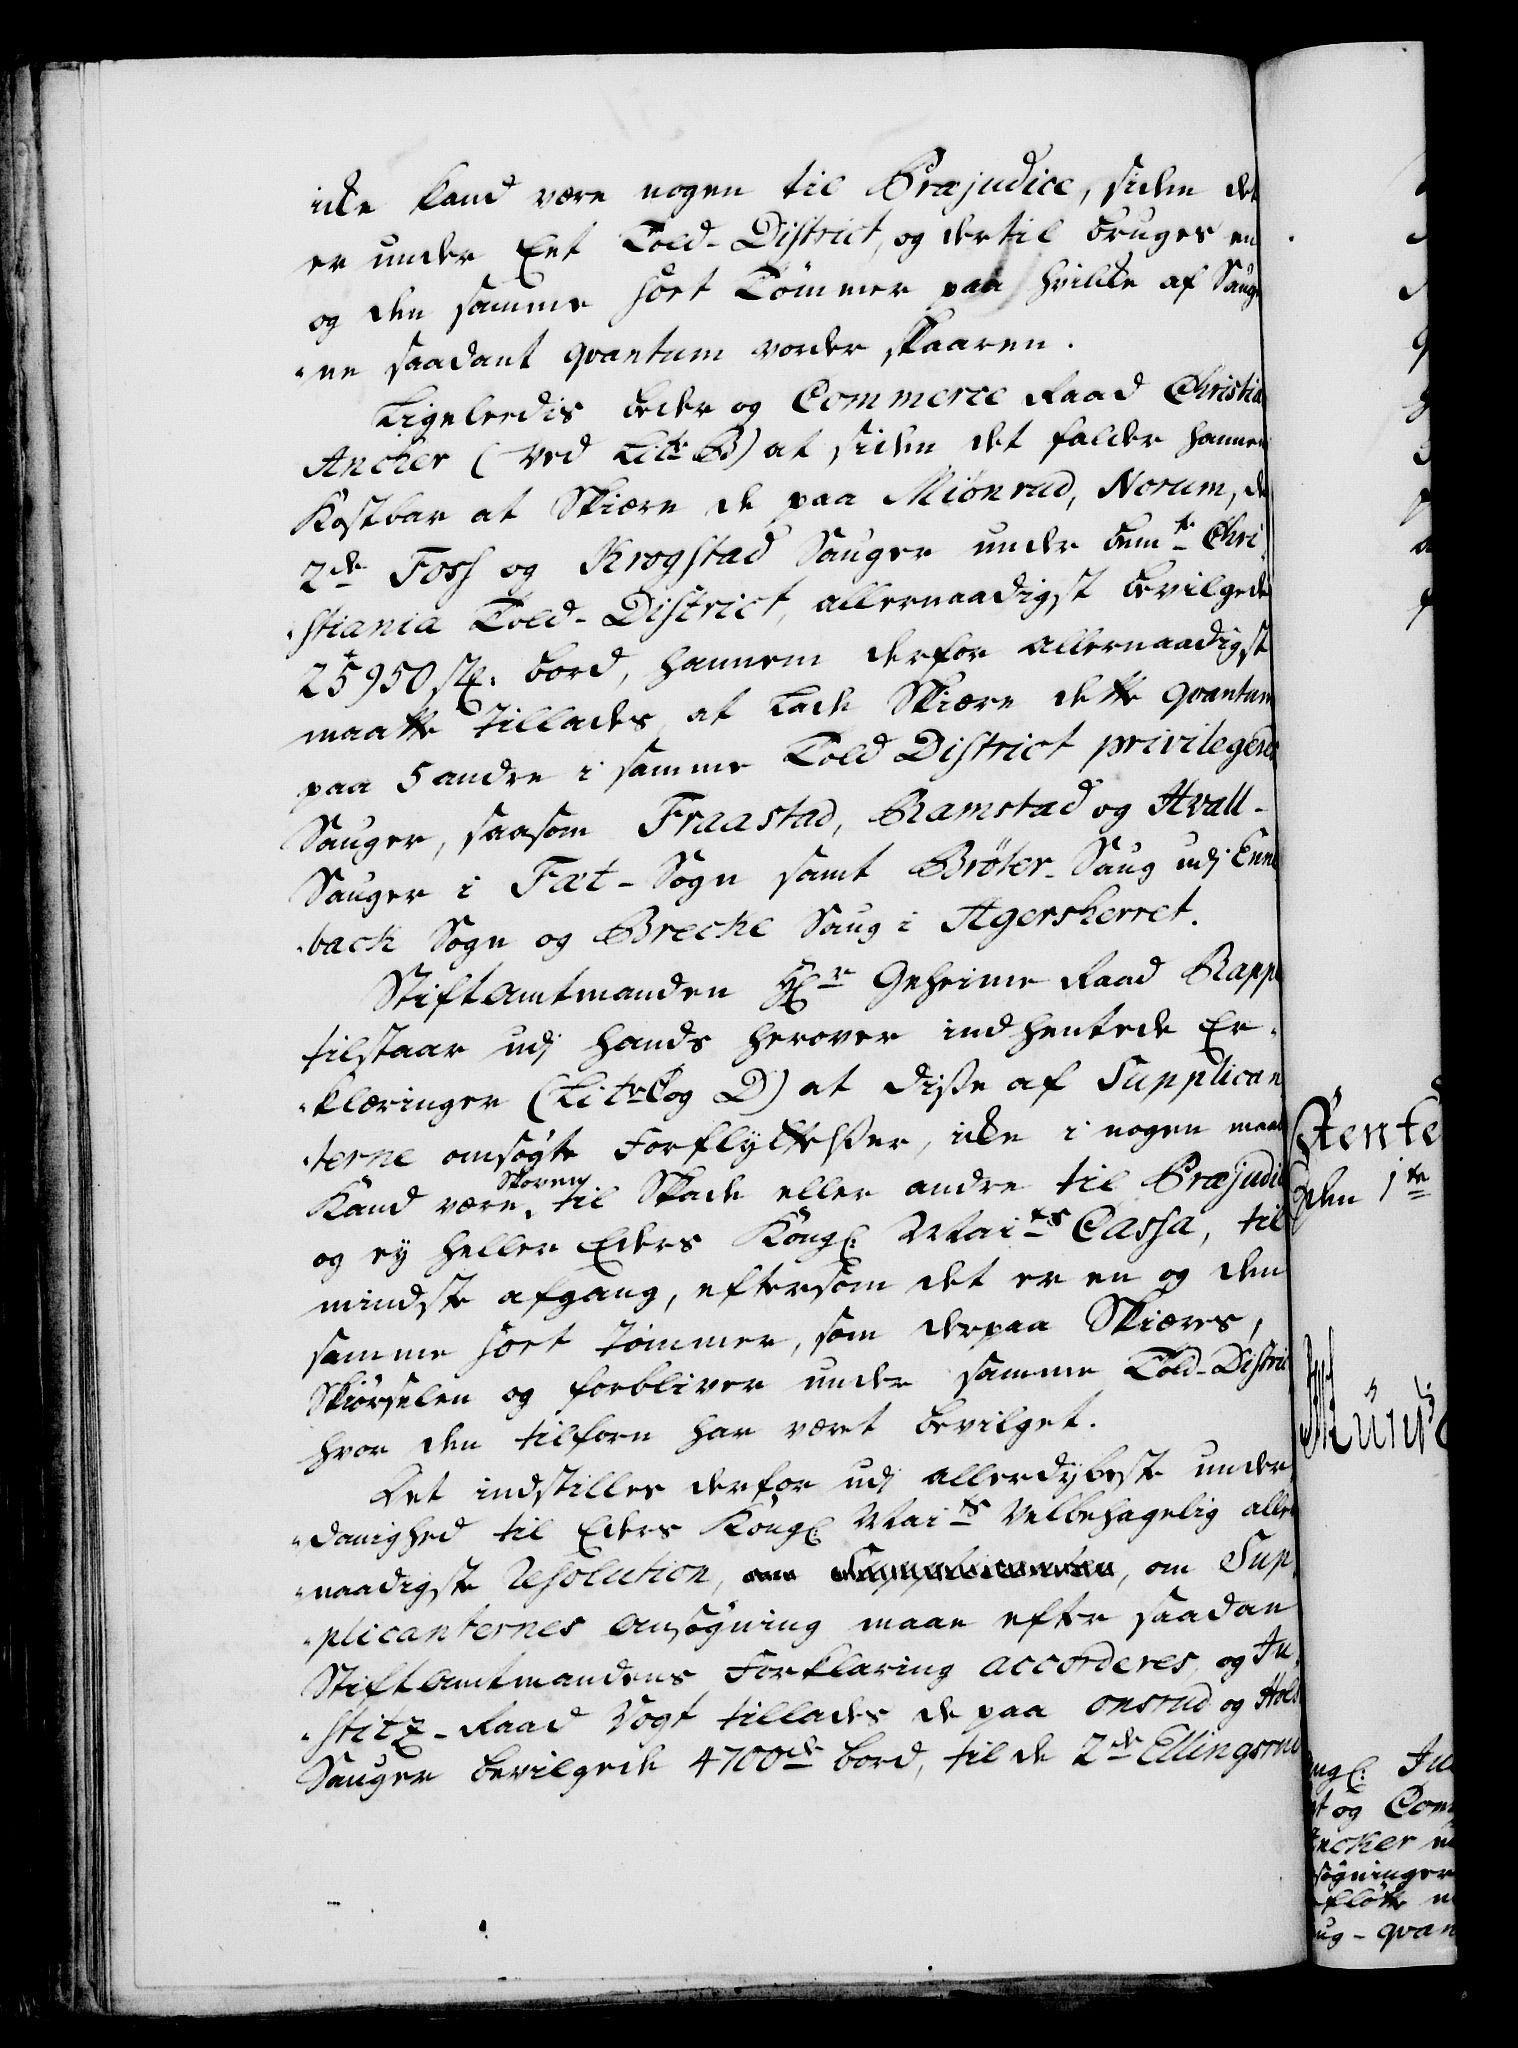 icke kand være nogen til Præjudice, siden det
er under Eet Told-District, og dertil bruges en
og den samme sort Tömmer paa hvilke af Sauge
-ne saadant qvantum vorder skaaren.
Ligeledis beder og Commerce Raad Christian
Ancher (ved Litr B) at siden det falder hannem
Kostbar at Skiære de paa Miönrud, Norum, de
2de Foss og Krogstad Sauger under bemte Chri-
-stiania Told-District, allernaadigst bevilgede
25950 st: bord, hannem derfor allernaadigst
maatte tillades at lade Skiære dette qvantum
paa 5 andre i samme Told District privilegerede
Sauger, saasom Fraastad, Ramstad og Hvall-
Sauger i Fæt-Sogn samt Bröter-Saug udj Enne
-back Sogn og Brecke Saug i Agersherret.
Stiftamtmanden Hr Geheime Raad Rappe
tilstaar udj hands herover indhentede Er-
-klæringer (Litr C og D) at disse af Supplican
-terne omsögte Forflyttelsser, icke i nogen maade
Kand være Skoven til Skade eller andre til Præjudice
og ey heller Eders Kongl: Maits Cassa, til
mindste afgang, eftersom det er en og den
samme sort tömmer, som derpaa Skiæres,
Skiörselen og forbliver under samme Told-District
hvor den tilforn har været bevilget.
Det indstilles derfor udj allerdybeste under
-danighed til Eders Kongl: Maits Velbehagelig aller
-naadigste Resolution, om Supplicanten, om Sup
-plicanternes ansögning maae efter saadan
Stiftamtmandens Forklaring accorderes, og Ju
-stitz-Raad Vogt tillades de paa Onsrud og Hols
Sauger bevilgede 4700de bord, til de 2de Ellingsrud
Rente
den 1te
ngl: Ju
t og Com
ncher
sögninger
flötte
ug-qvan